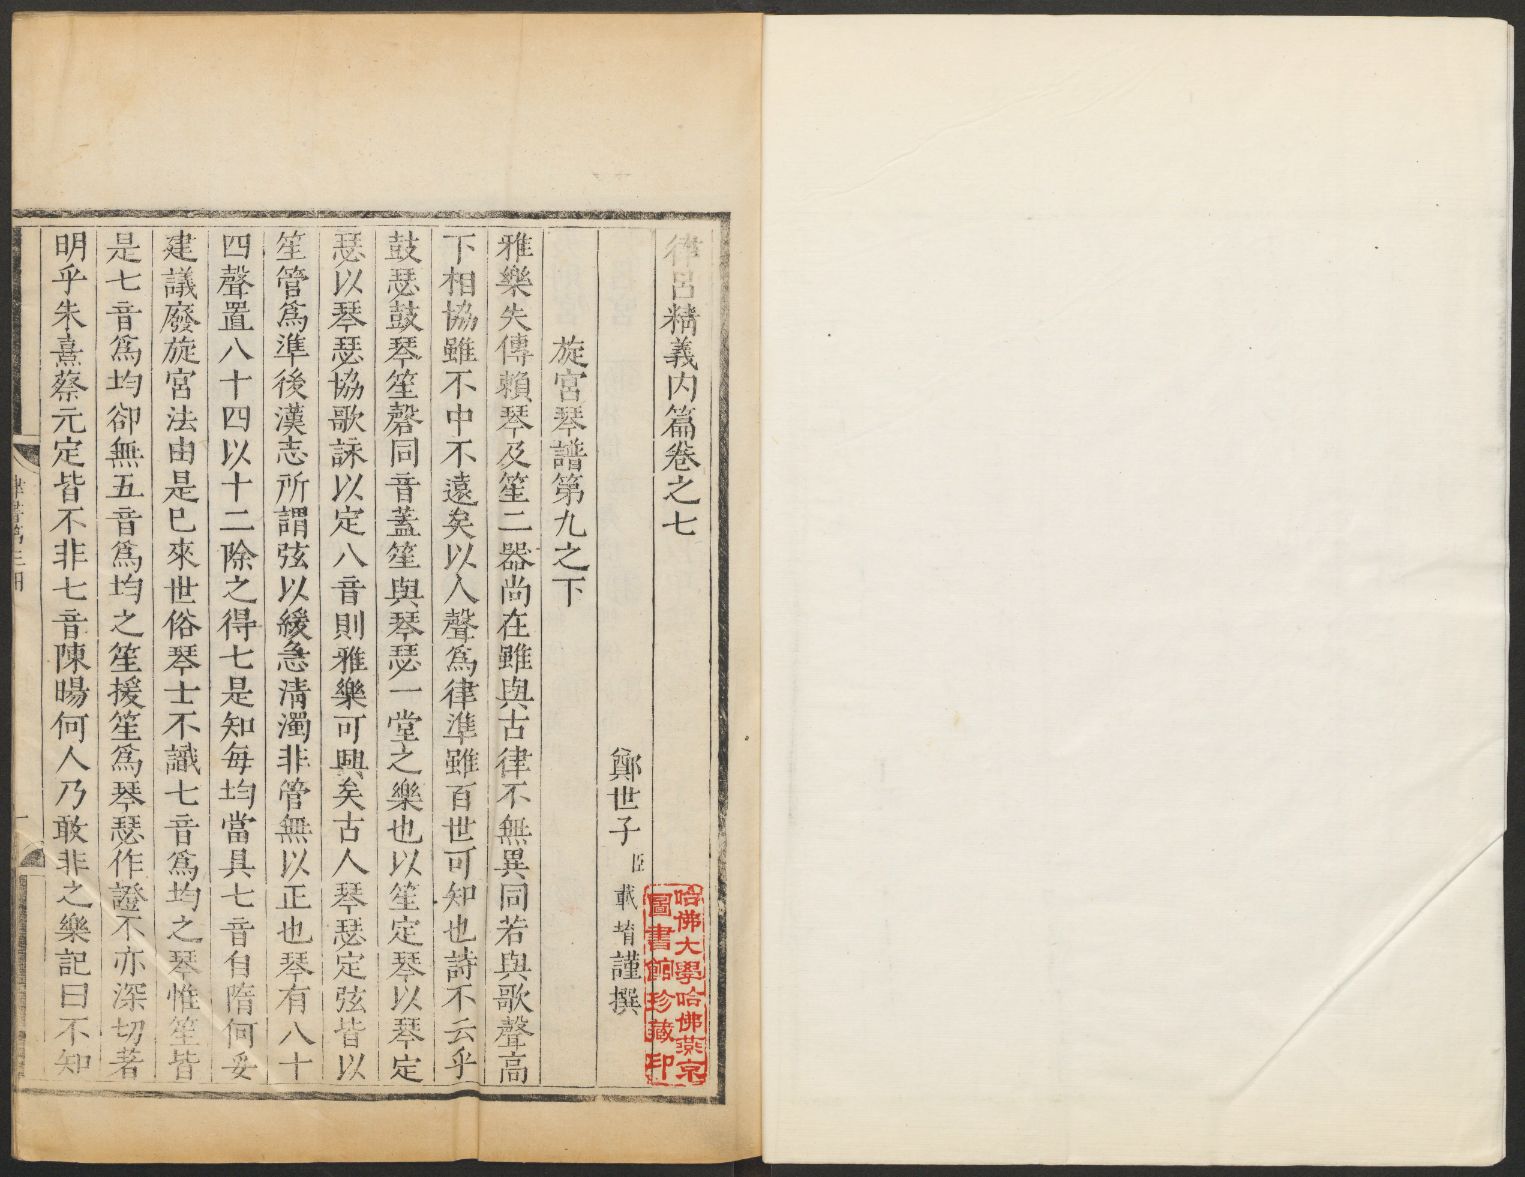 律呂精義内篇卷之七
鄭世子臣載堉謹撰
旋宮琴譜第九之下
雅樂失傳賴琴及笙二器尚在雖與古律不無異同若與歌聲高
下相協雖不中不遠矣以人聲爲律準雖百世可知也詩不云乎
鼓瑟鼓琴笙磬同音蓋笙與琴瑟一堂之樂也以笙定琴以琴定
瑟以琴瑟協歌詠以定八音則雅樂可興矣古人琴瑟定弦皆以
笙管爲準後漢志所謂弦以緩急清濁非管無以正也琴有八十
四聲置八十四以十二除之得七是知每均當具七音自隋何妥
建議廢旋宮法由是已來世俗琴士不識七音爲均之琴惟笙皆
是七音爲均卻無五音爲均之笙援笙爲琴瑟作證不亦深切著
明乎朱熹蔡元定皆不非七音陳暘何人乃敢非之樂記曰不知
哈佛大學哈佛燕京
圖書館珍藏印